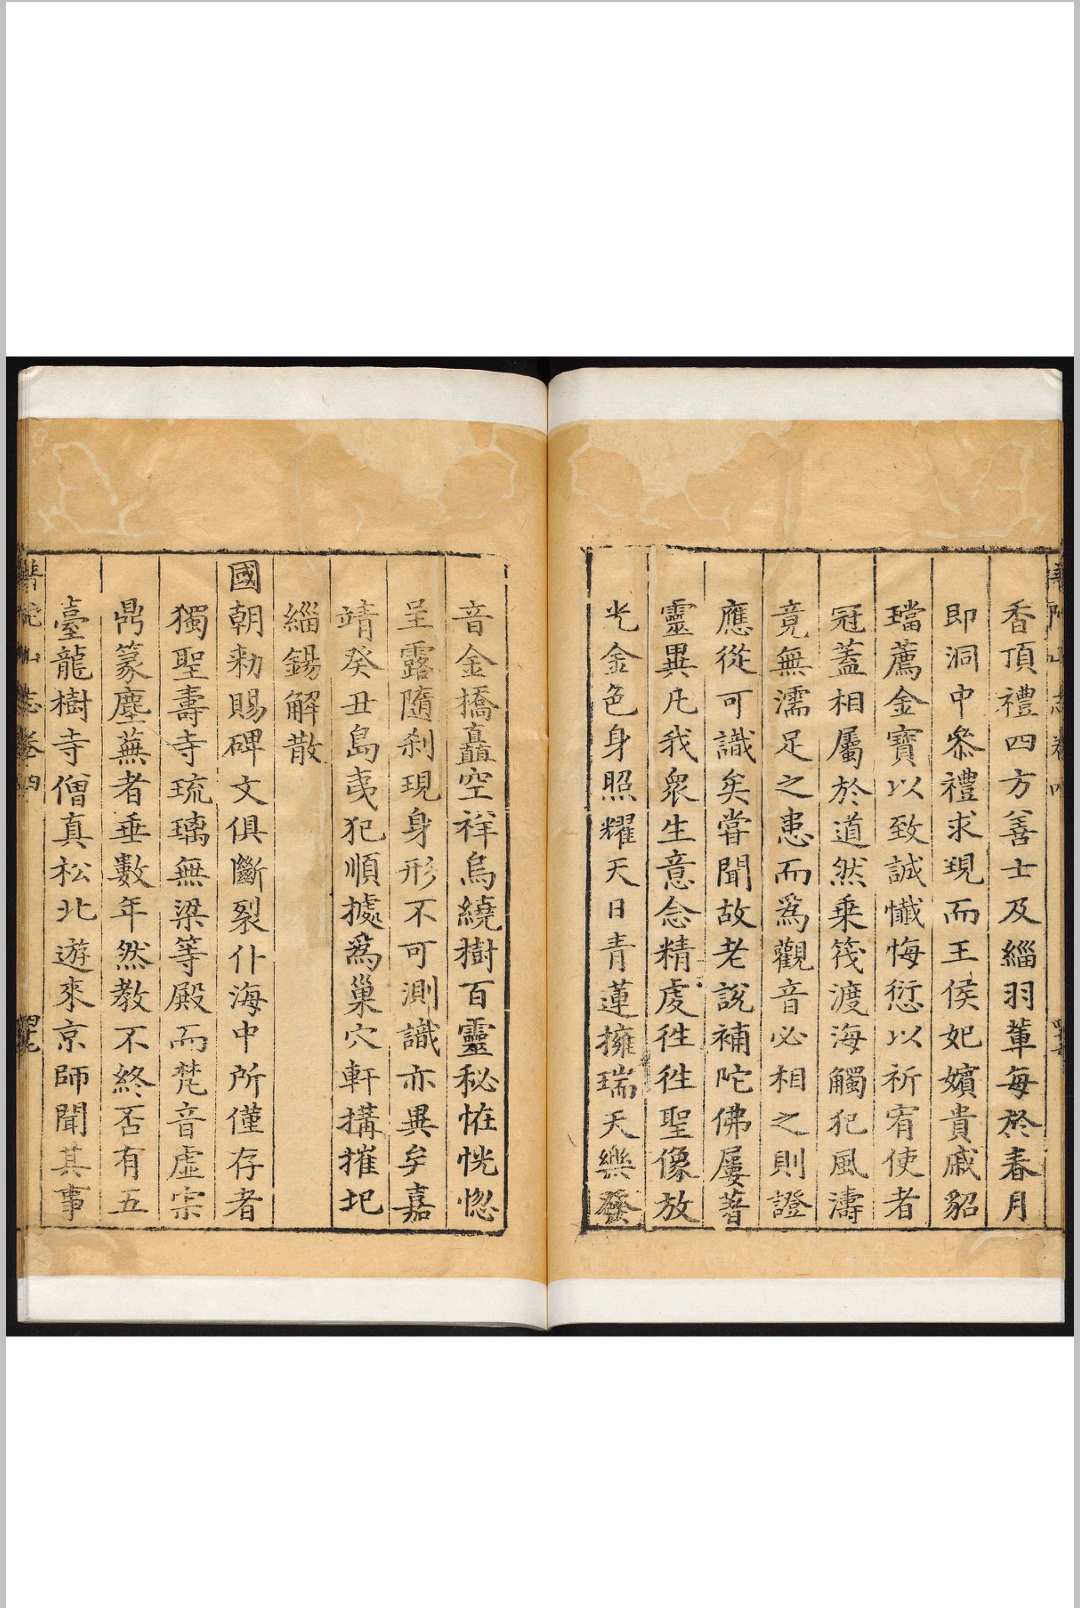 香頂禮四方善士及緇羽輩每於春月
即洞中叅禮求現而王侯妃嬪貴戚貂
璫薦金寶以致誠懺悔愆以祈宥使者
冠蓋相屬於道然乗筏渡海觸犯風濤
竟無濡足之患而爲觀音必相之則證
應從可識矣甞聞故老說補陀佛屢著
靈異凡我衆生意念精虔徃徃聖像放
光金色身照耀天日青蓮擁瑞天樂發
音金橋矗空祥鳥繞樹百靈秘恠恍惚
呈露隨刹現身形不可測識亦異矣嘉
靖癸丑島夷犯順據爲巢穴軒搆摧圯
緇錫解散
國朝勑賜碑文俱斷裂仆海中所僅存者
獨聖壽寺琉璃無梁等殿而梵音虛宗
鼎篆塵蕪者垂數年然教不終否有五
臺龍樹寺僧真松北遊來京師聞其事
普陀山志卷四